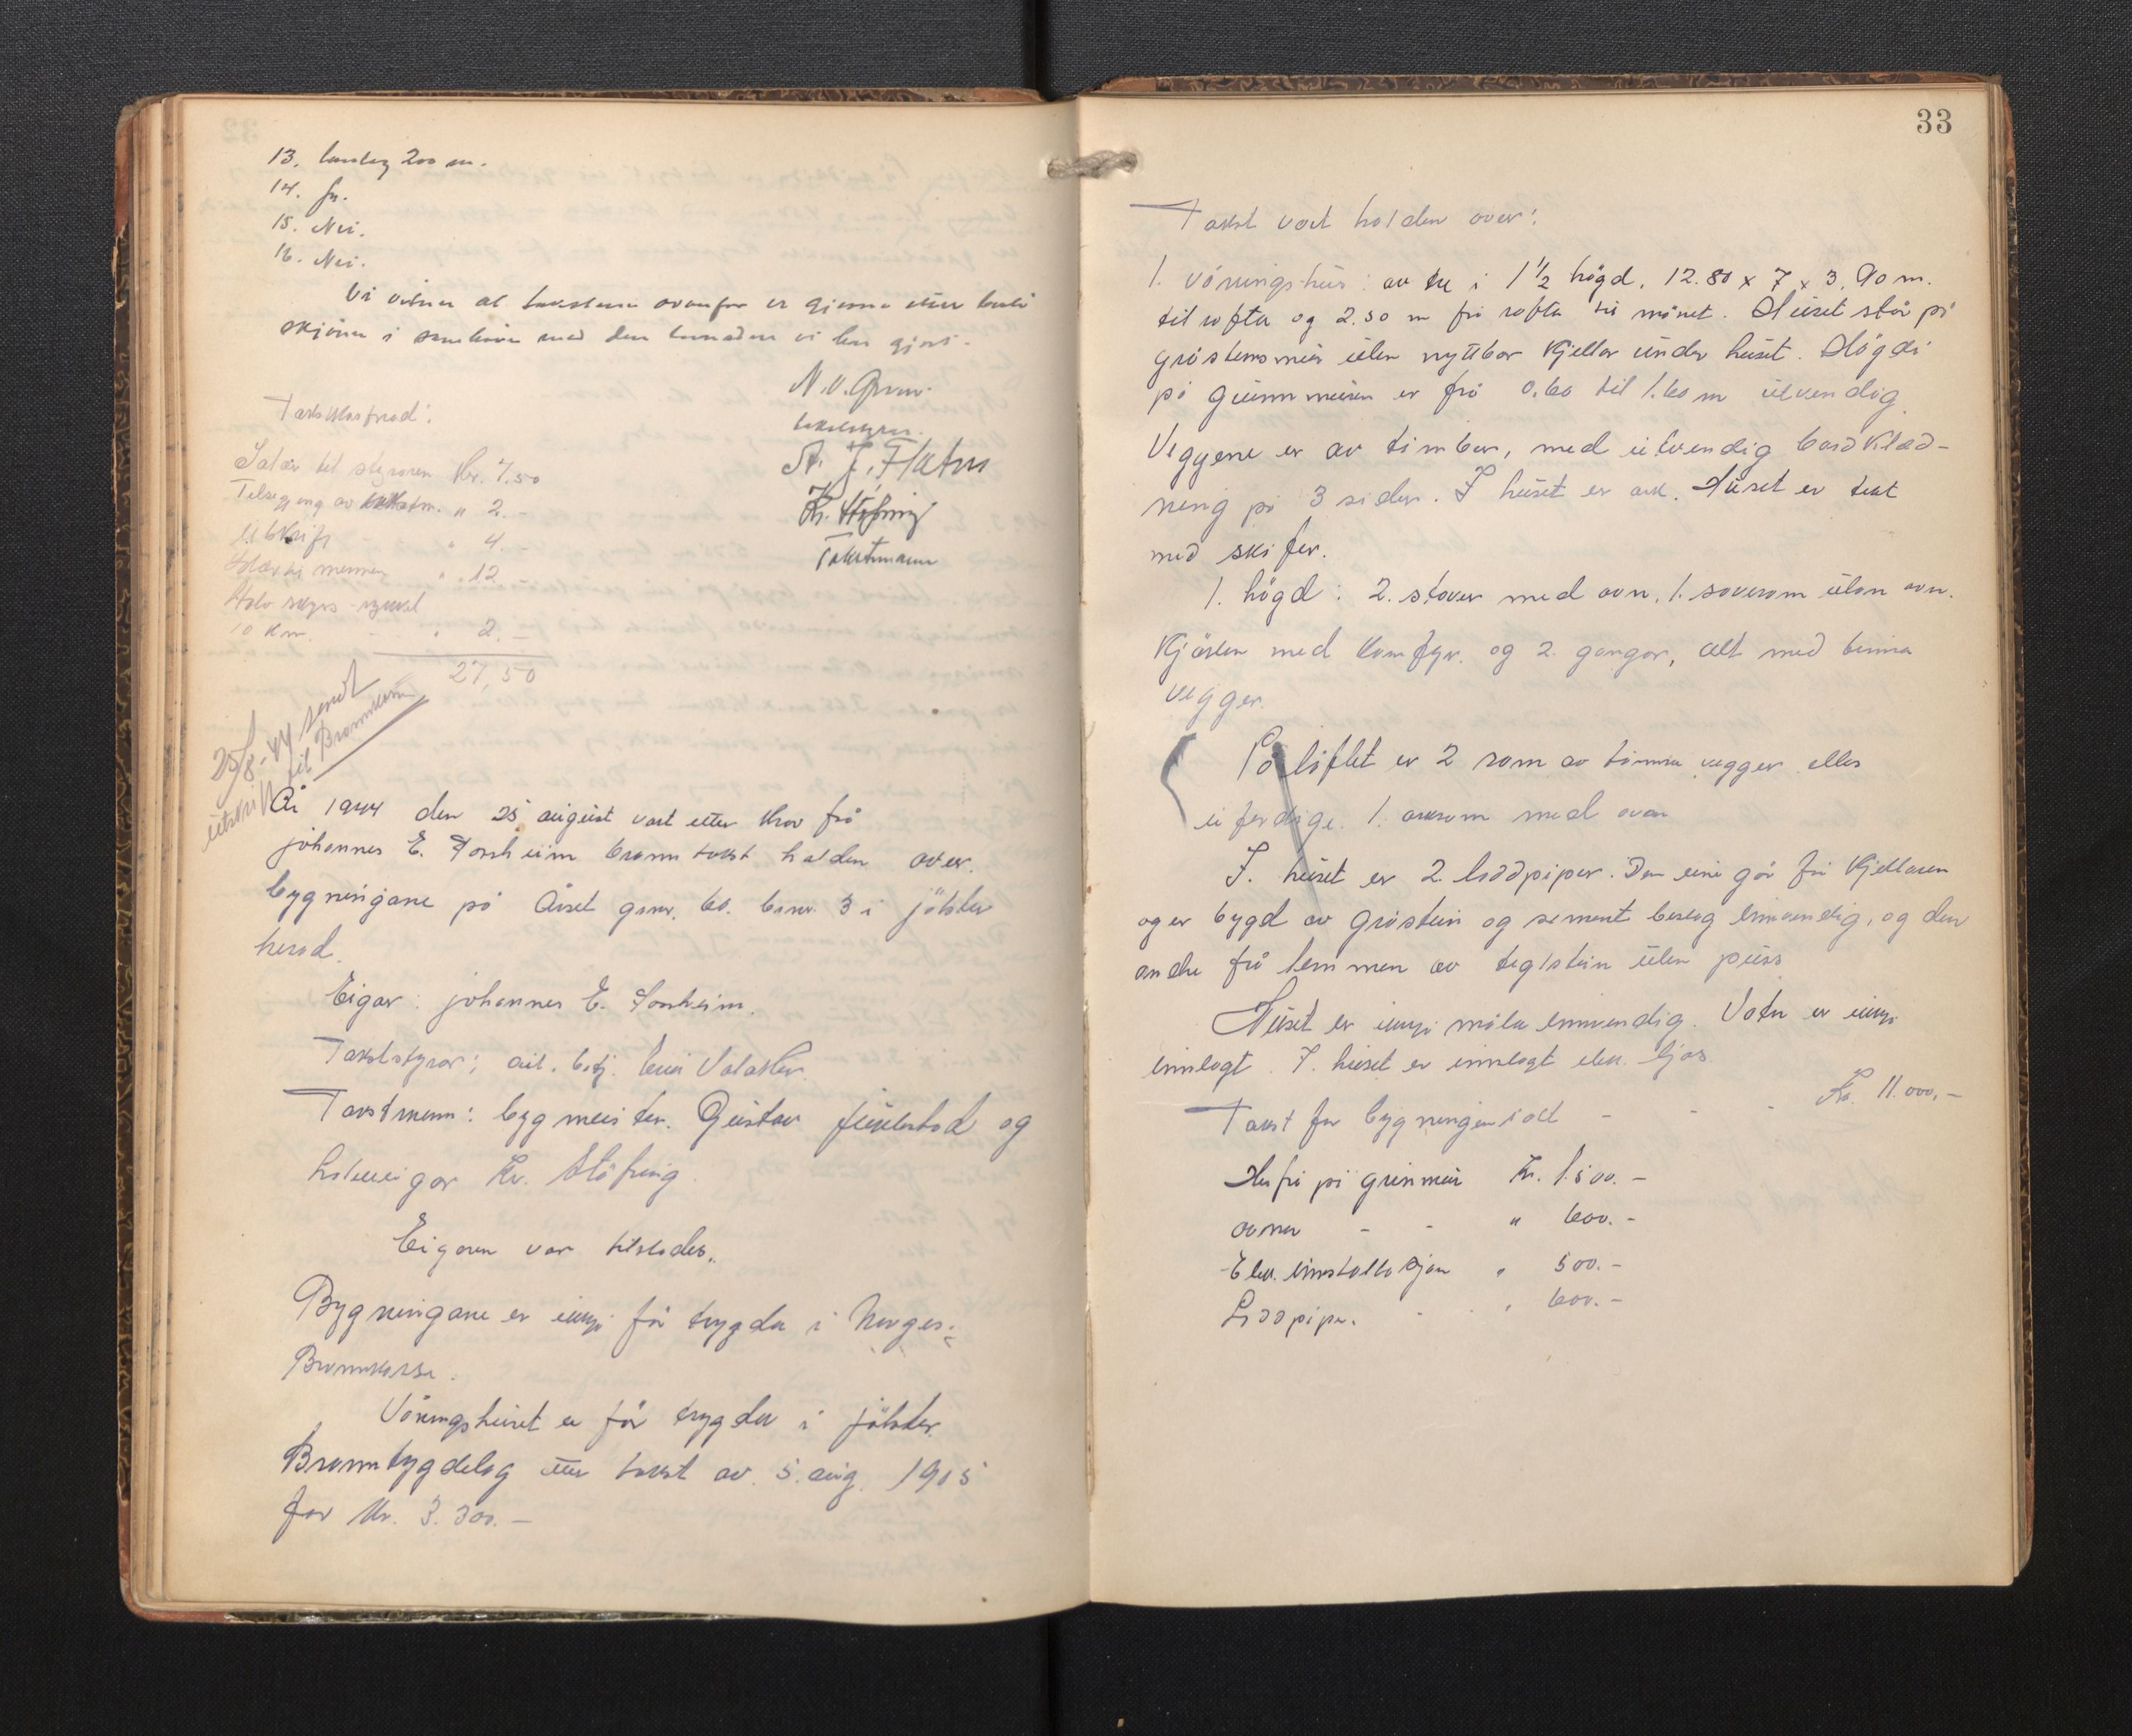 13. 200 m.
14. Ja.
15. Nei.
16. Nei.
Vi vitner at takstene ovanfor er gjevne etter beste
skjønn i samhøve med den vi har gjort.
N. O. Grov.
takststyrar.
A. J. Flatns
Kr. Støfring
Takstmann
Takstkostnad:
Salær til styraren Kr. 7.50
Tilsegjing av takstm. " 2.-
Utskrift - - " 4.-
til mennen " 12 -
skyss
10 km. - " 2.-
27,50
25/8-44 sendt
utskrift til Brannkassa
År 1944 den 25 august vart etter krav frå
Johannes E. branntakst halden over
bygningane på Årset gnr. 60. bnr. 3 i Jølster
herad.
Eigar: Johannes E.
Takststyrar:
Takstmenn: byggmeister. Gustav og
Kr. Støfring.
Eigaren var tilstades.
Bygningane er ikkje før trygda i Norges
Brannkassa.
Våningshuset er før trygda i Jølster
Branntrygdelag etter takst av 5. aug. 1915
for Kr. 3.300.-
33
Takst vart halden over:
1. våningshus: av tre i 1 1/2 høgd. 12.80 x 7 x 3.90 m.
til rofta og 2.50 m frå rofta til mønet. Huset står på
gråsteinsmur uten nyttbar kjellar under huset. Høgdi
på grunnmuren er frå 0.60 til 1.60 m utvendig.
Veggene er av timber, med utvendig bordklæd-
ning på 3 sider. I huset er ark. Huset er tekt
med skifer.
1. høgd: 2. stover med ovn. 1. soverom utan ovn.
Kjøken med komfyr. og 2. gangar, alt med
vegger.
På loftet er 2 rom av vegger elles
uferdige. 1. arkrom med ovn
I. huset er 2. loddpiper. Den eine går frå kjellaren
og er bygd av gråstein og sement beslag innvendig, og den
andre frå lemmen av teglstein uten puss
Huset er ikkje måla innvendig. Vatn er ikkje
innlagt. I. huset er innlagt elek. ljos
Takst for bygningen i alt - - - Kr. 11.000,-
Herfrå på grunmur Kr. 1.500.-
ovner - - " 600.-
Elek. innstallasjon " 500.-
Loddpiper. - " 600.-